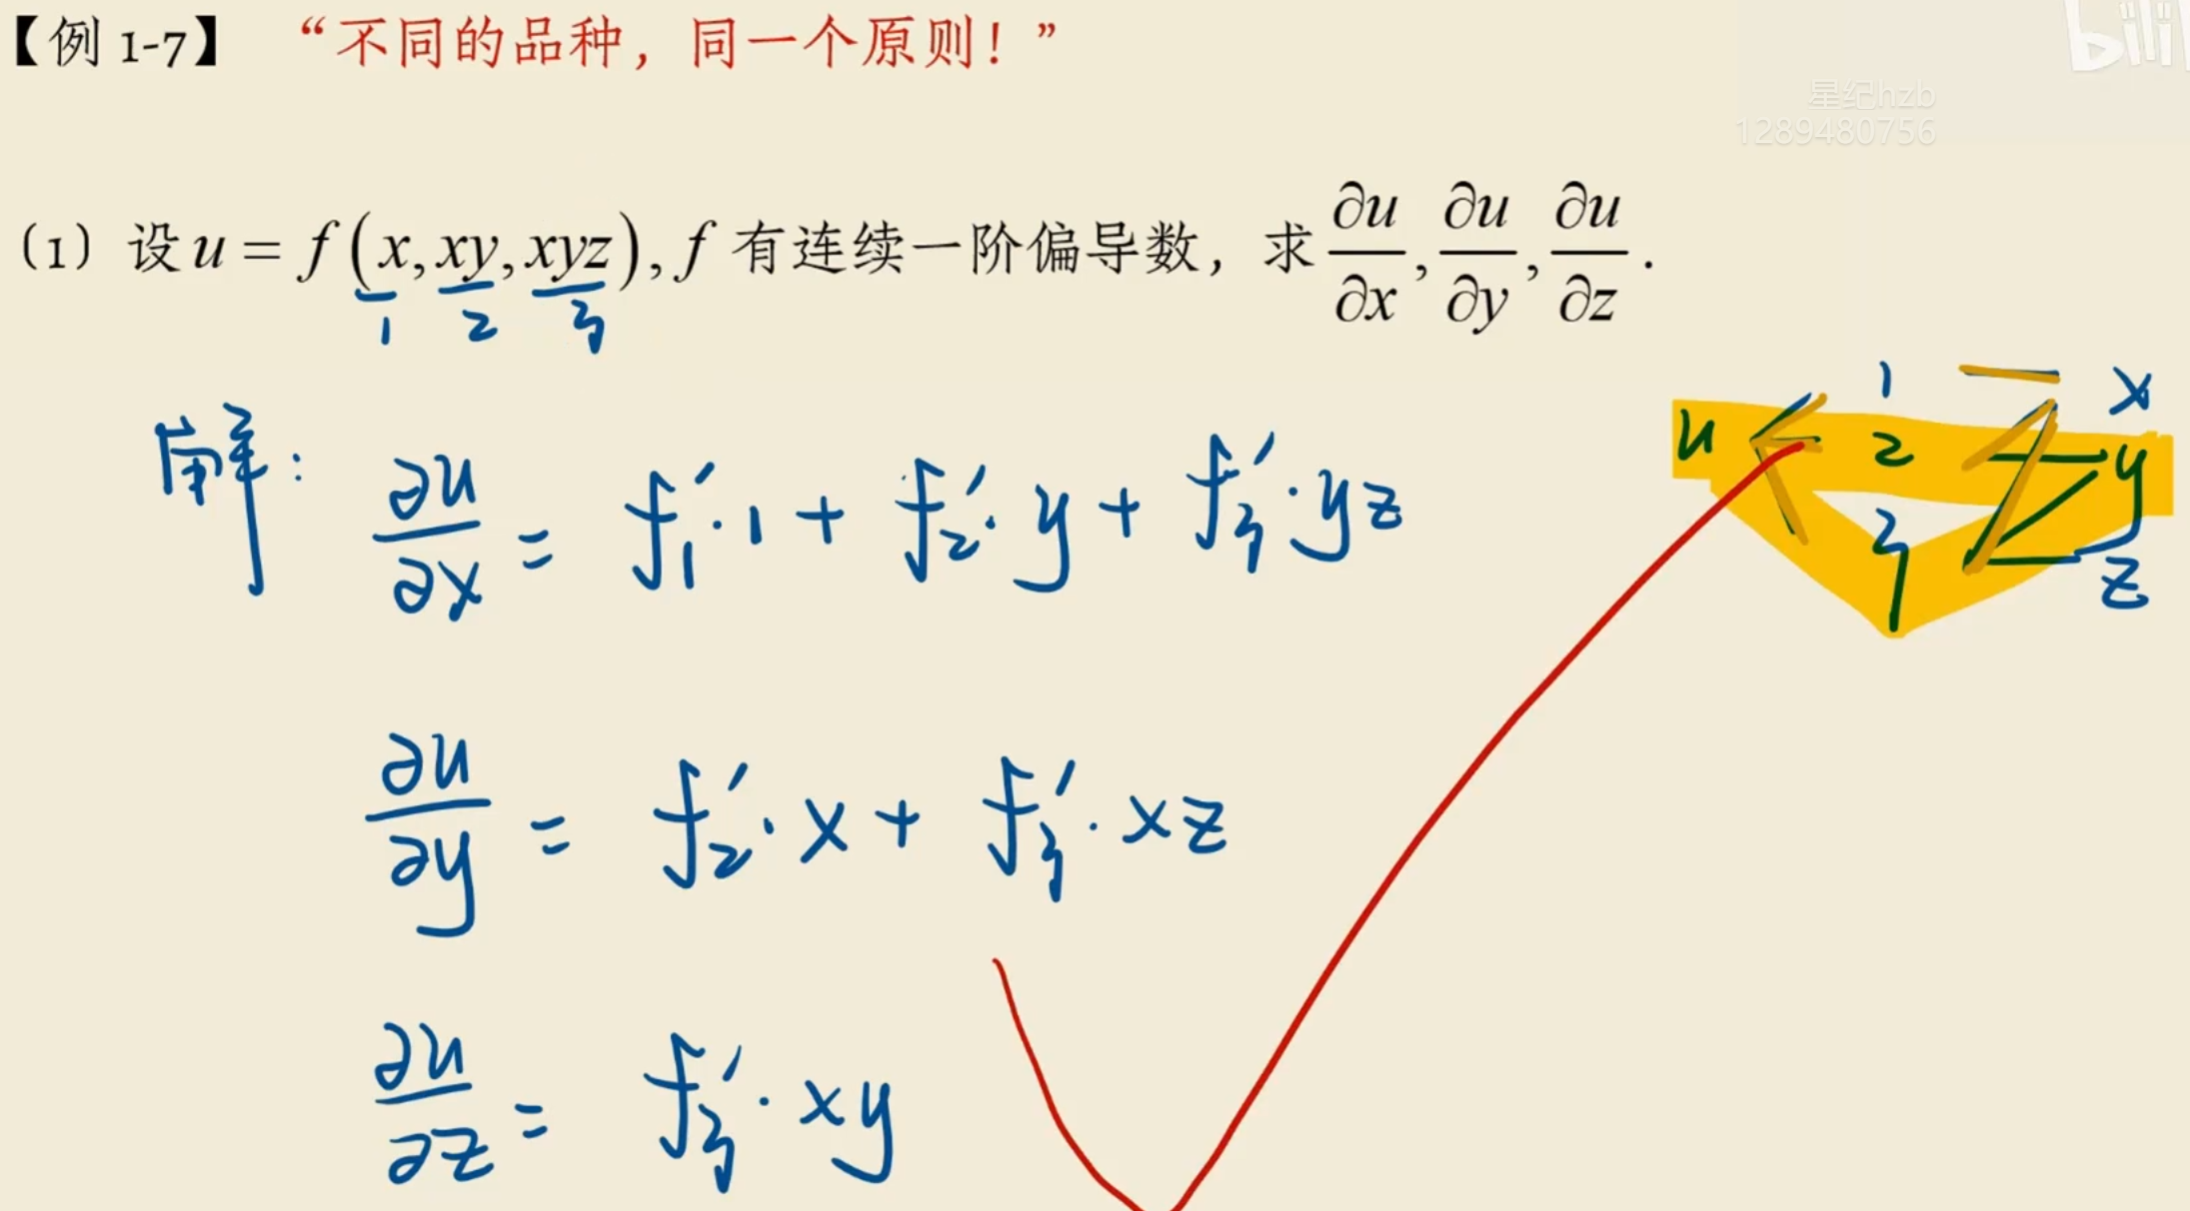 【例 1-7】 “不同的品种，同一个原则！”
bili
星纪hzb
1289480756
(1) 设 u = f(x, xy, xyz), f 有连续一阶偏导数，求 ∂u/∂x, ∂u/∂y, ∂u/∂z .
1 2 3
解: ∂u/∂x = f₁′·1 + f₂′·y + f₃′·yz
1 x
u 2 y
3 z
∂u/∂y = f₂′·x + f₃′·xz
∂u/∂z = f₃′·xy